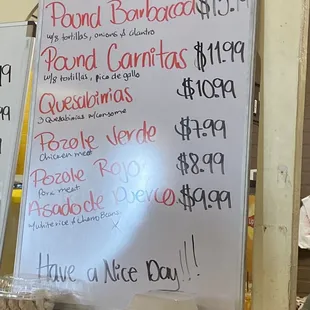 Pound Barbacoa $13.99
w/8 tortillas, onions & cilantro
Pound Carnitas $11.99
w/8 tortillas, pico de gallo
Quesabirrias $10.99
3 Quesabirrias w/consome
Pozole Verde $7.99
Chicken meat
Pozole Rojo $8.99
Pork meat
Asado de Puerco $9.99
w/white rice & Charro Beans
Have a Nice Day!!!